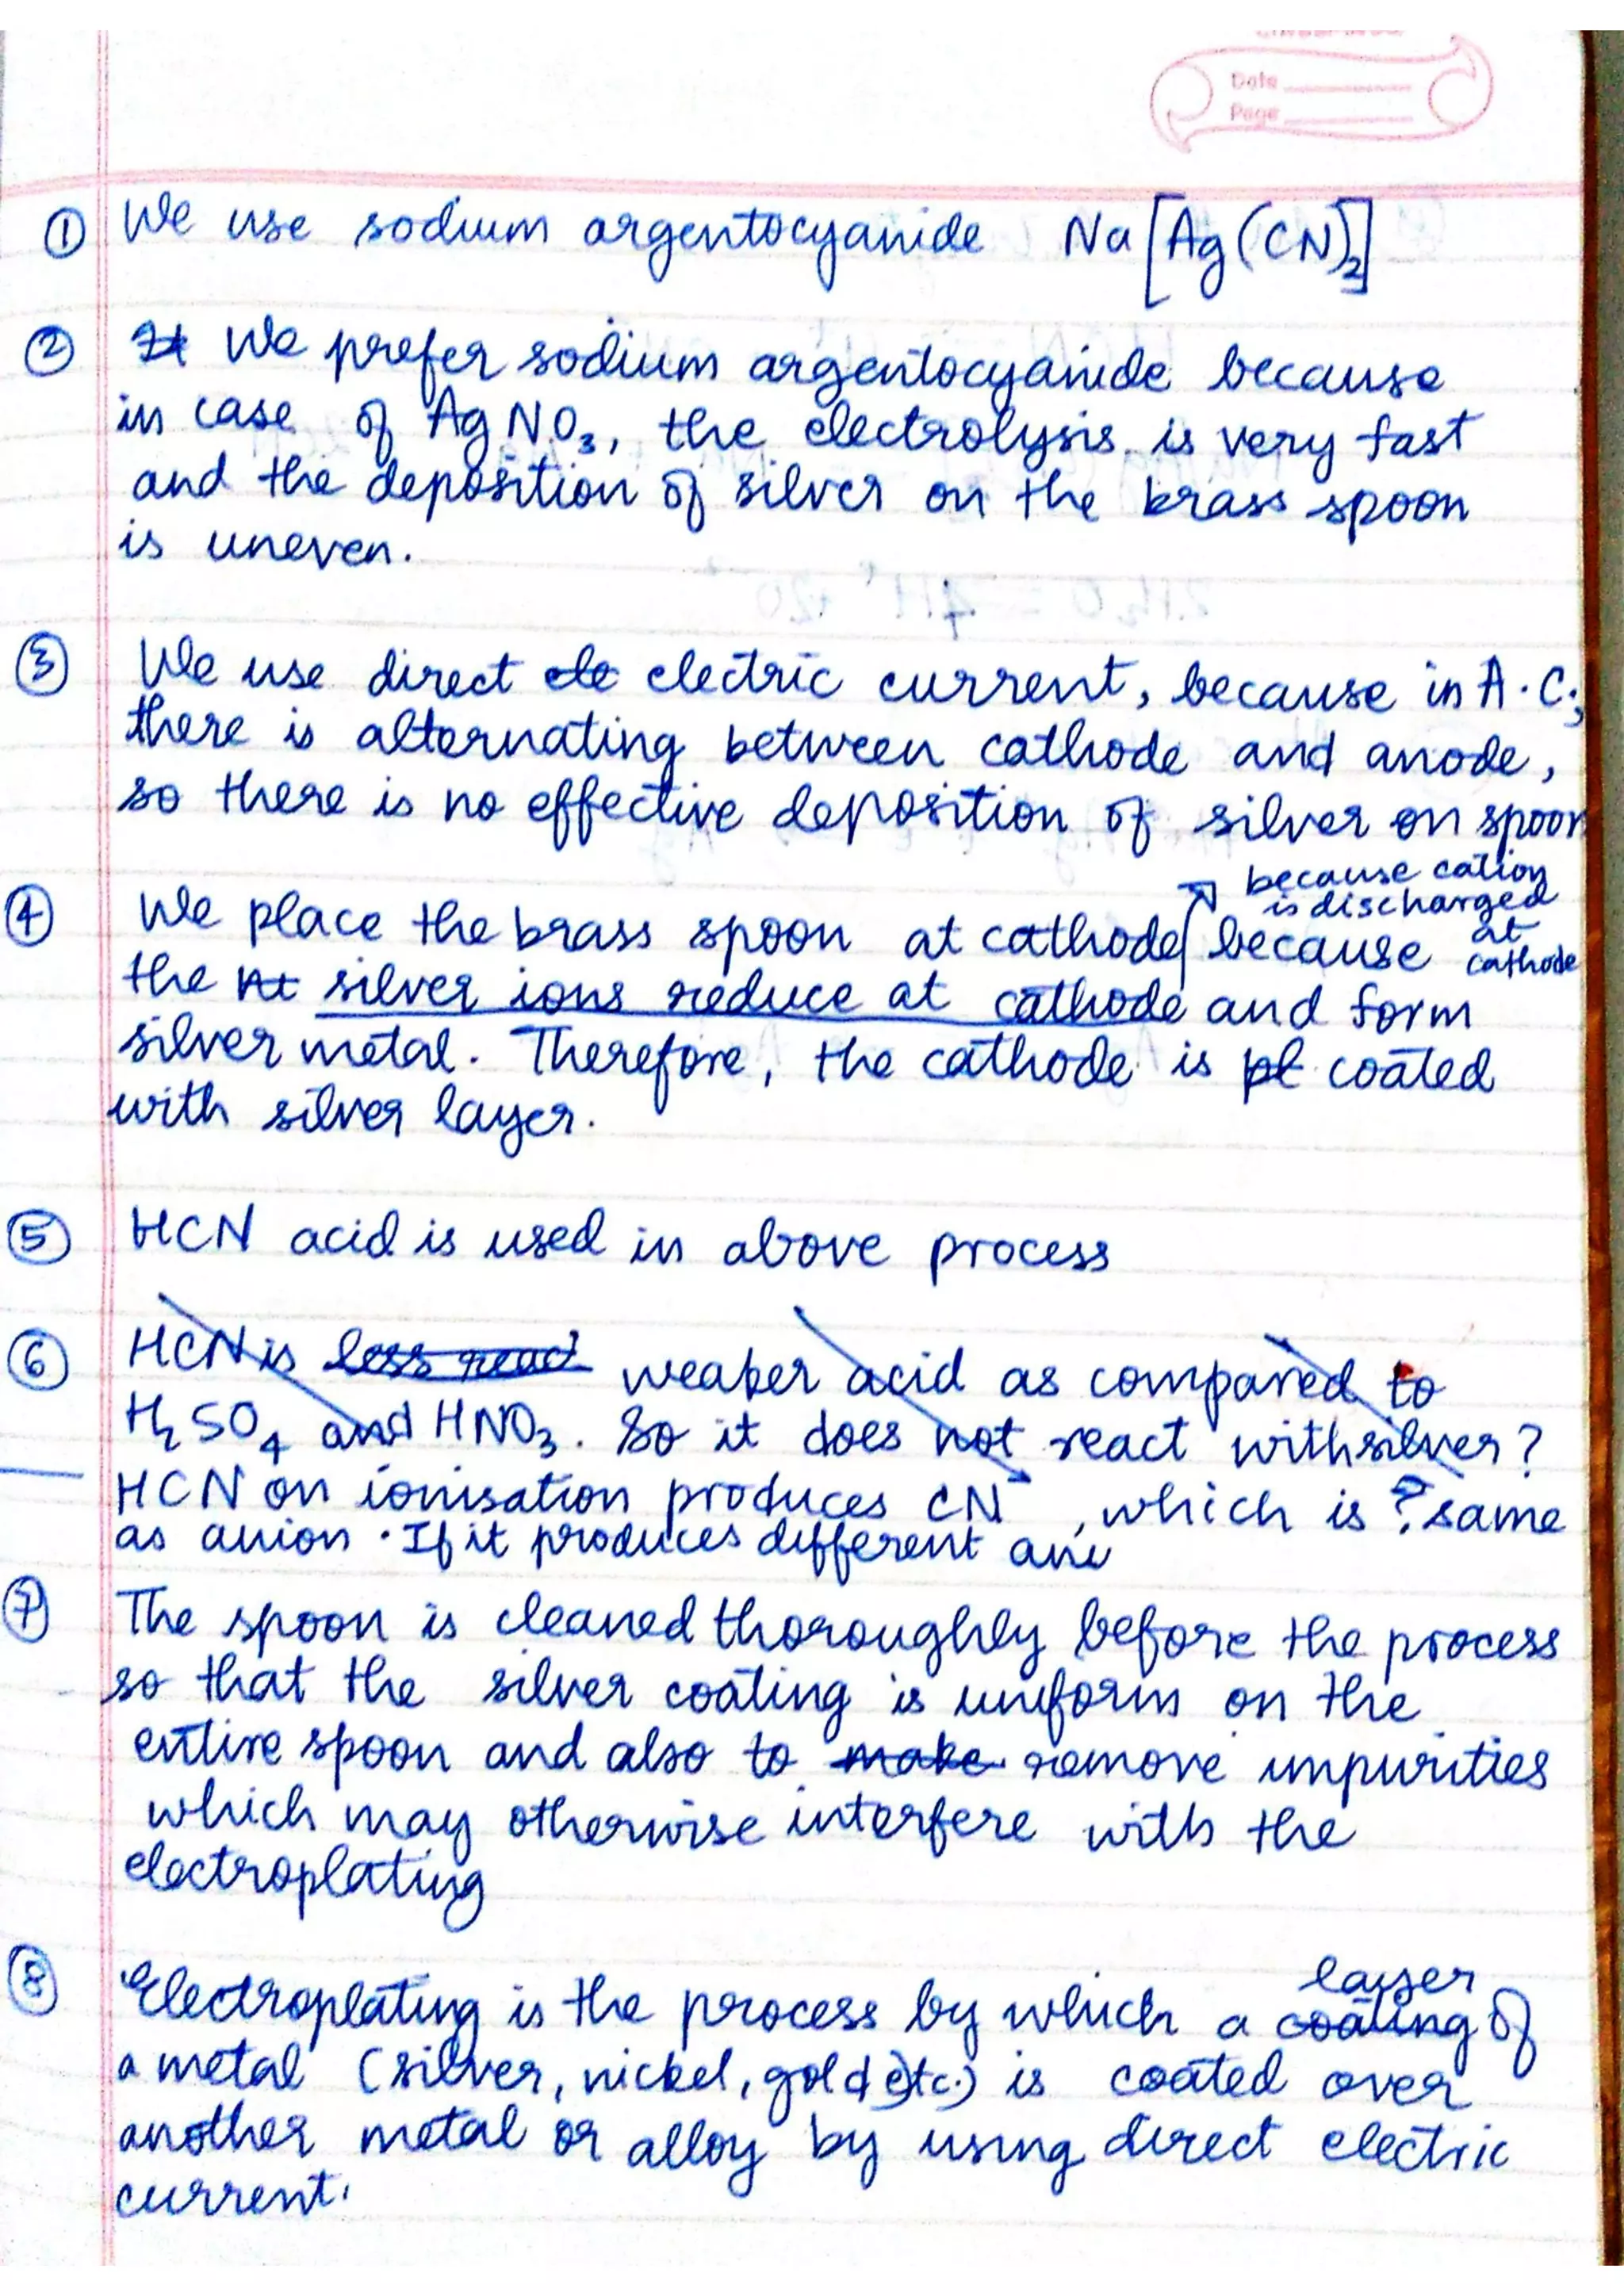 Date
Page
① We use sodium argentocyanide Na[Ag(CN)₂]
② It We prefer sodium argentocyanide because
in case of AgNO₃, the electrolysis is very fast
and the deposition of silver on the brass spoon
is uneven.
③ We use direct ele electric current, because in A.C.,
there is alternating between cathode and anode,
so there is no effective deposition of silver on spoon
because cation
is discharged
at
cathode
④ We place the brass spoon at cathode because
the silver ions reduce at cathode and form
silver metal. Therefore, the cathode is pl coated
with silver layer.
⑤ HCN acid is used in above process
⑥ HCN is less react weaker acid as compared to
H₂SO₄ and HNO₃. So it does not react with silver?
HCN on ionisation produces CN⁻, which is ? same
as anion. If it produces different ani
⑦ The spoon is cleaned thoroughly before the process
so that the silver coating is uniform on the
entire spoon and also to make remove impurities
which may otherwise interfere with the
electroplating
layer
⑧ Electroplating is the process by which a coating of
a metal (silver, nickel, gold etc.) is coated over
another metal or alloy by using direct electric
current.